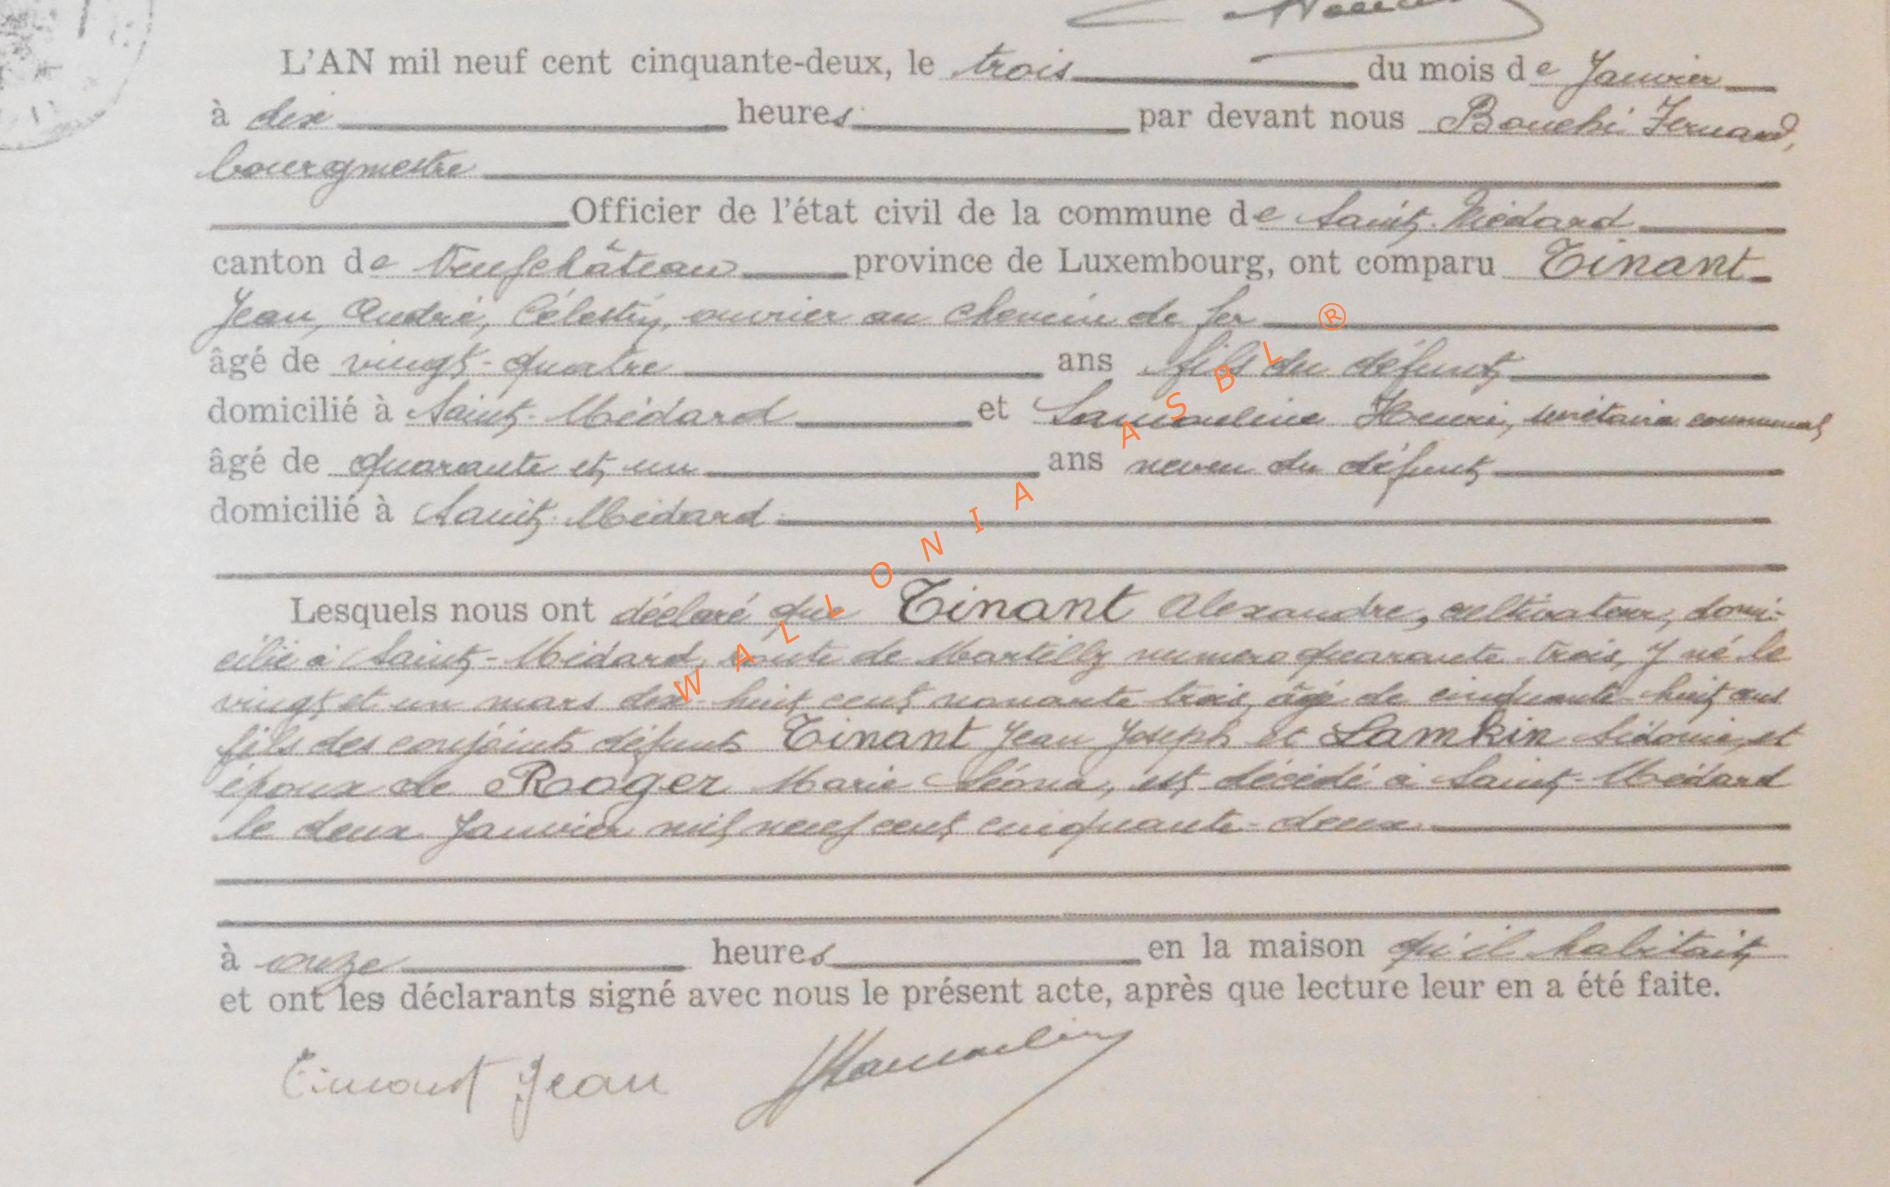 L'AN mil neuf cent cinquante-deux, le trois du mois de Janvier
à dix heures par devant nous Bouché Fernand,
bourgmestre
Officier de l'état civil de la commune de Saint-Médard
canton de Neufchâteau province de Luxembourg, ont comparu Tinant
Jean, André, Célestin, ouvrier au chemin de fer
âgé de vingt-quatre ans fils du défunt
domicilié à Saint-Médard et Lamouline Henri, secrétaire communal
âgé de quarante et un ans neveu du défunt
domicilié à Saint-Médard
Lesquels nous ont déclaré que Tinant Alexandre, cultivateur, domi-
cilié à Saint-Médard, route de Martilly numéro quarante-trois, y né le
vingt et un mars dix-huit cent nonante trois, âgé de cinquante-huit ans
fils des conjoints défunts Tinant Jean Joseph et Lamkin Sidonie, et
époux de Roger Marie Léona, est décédé à Saint-Médard
le deux Janvier mil neuf cent cinquante-deux
à onze heures en la maison qu'il habitait
et ont les déclarants signé avec nous le présent acte, après que lecture leur en a été faite.
Tinant Jean HLamouline
WALLONIA ASBL ®